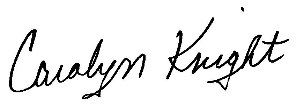 Carolyn Knight